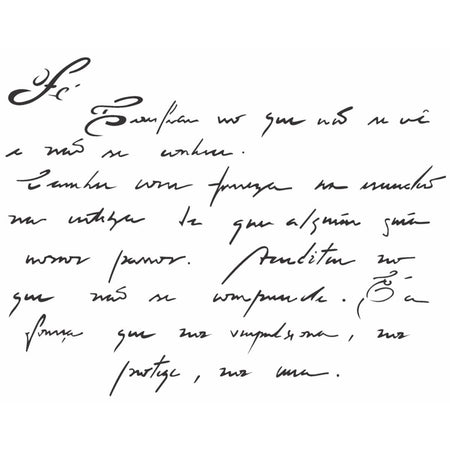 Fé
Confiar no que não se vê
e não se conhece.
Caminhar com firmeza na escuridão
na certeza de que alguém guia
nossos passos. Acreditar no
que não se compreende. É a
força que nos impulsiona, nos
protege, nos cura.